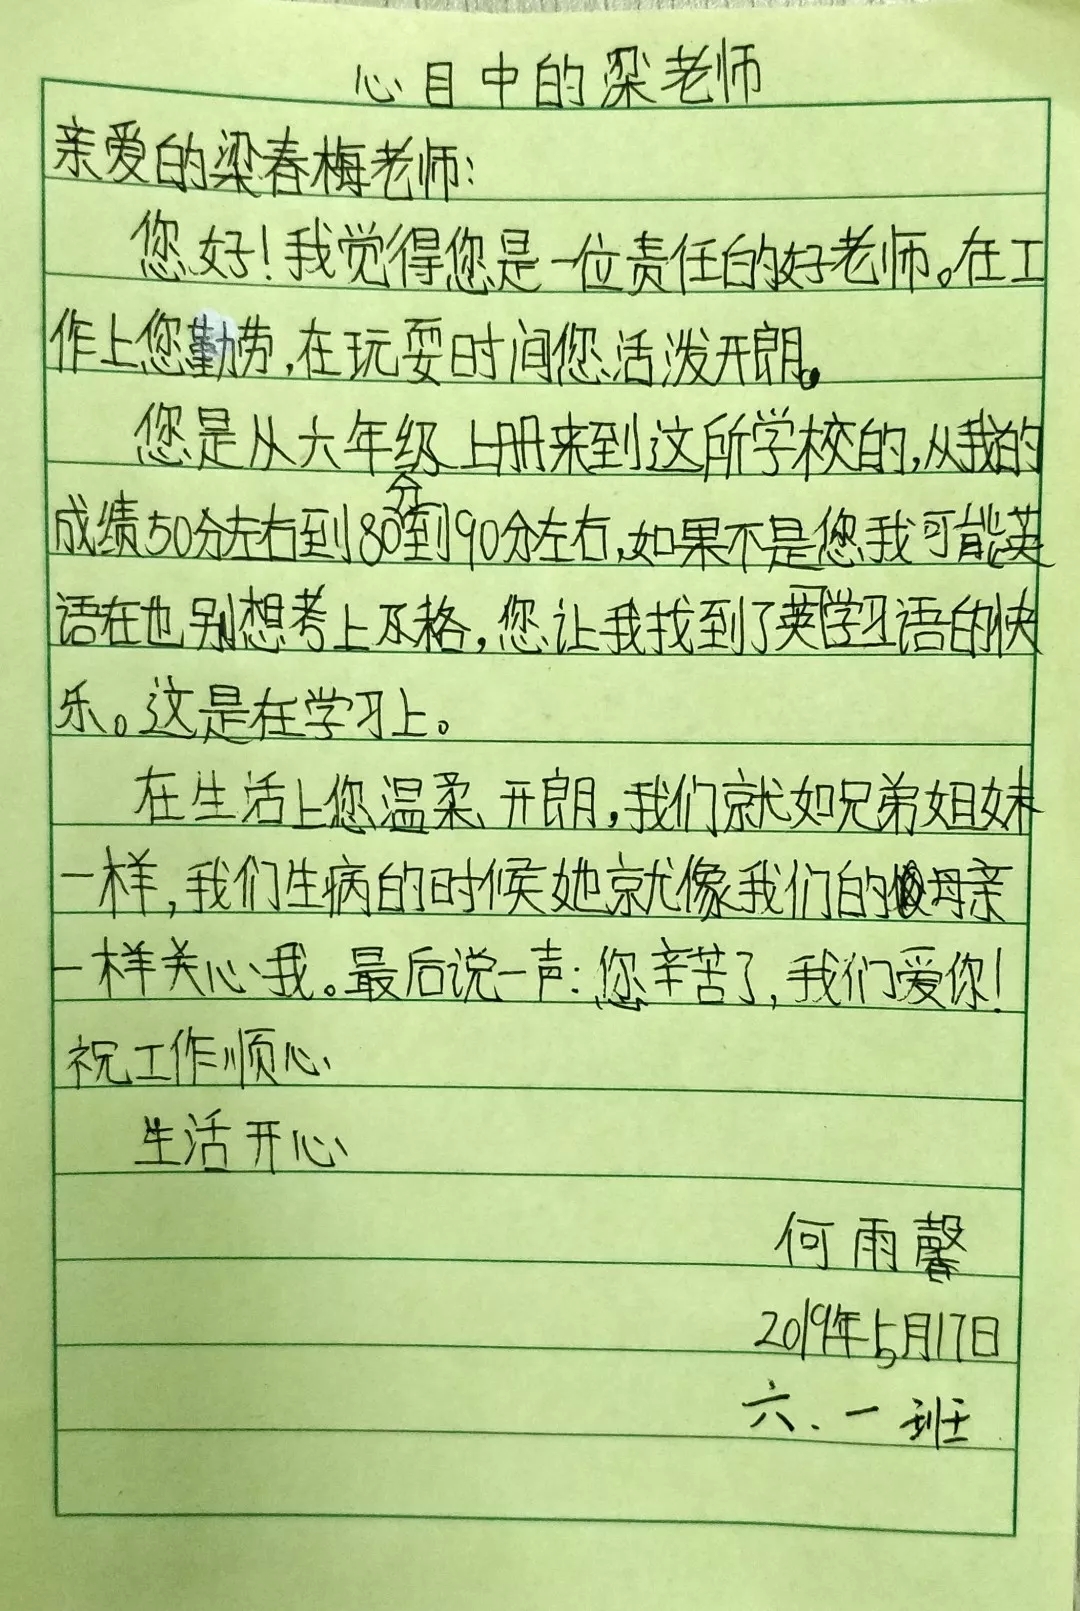 心目中的梁老师
亲爱的梁春梅老师：
您好！我觉得您是一位责任的好老师。在工
作上您勤劳，在玩耍时间您活泼开朗。
您是从六年级上册来到这所学校的，从我的
成绩50分左右到80分到90分左右，如果不是您我可能英
语在也别想考上及格，您让我找到了英学习语的快
乐。这是在学习上。
在生活上您温柔、开朗，我们就如兄弟姐妹
一样，我们生病的时候她就像我们的母亲
一样关心我。最后说一声：您辛苦了，我们爱你！
祝工作顺心
生活开心
何雨馨
2019年5月17日
六、一班